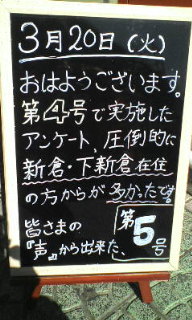 3月20日(火)
おはようございます。
第4号で実施した
アンケート、圧倒的に
新倉・下新倉在住
の方からが多かったです。
皆さまの
『声』から出来た、
第5号